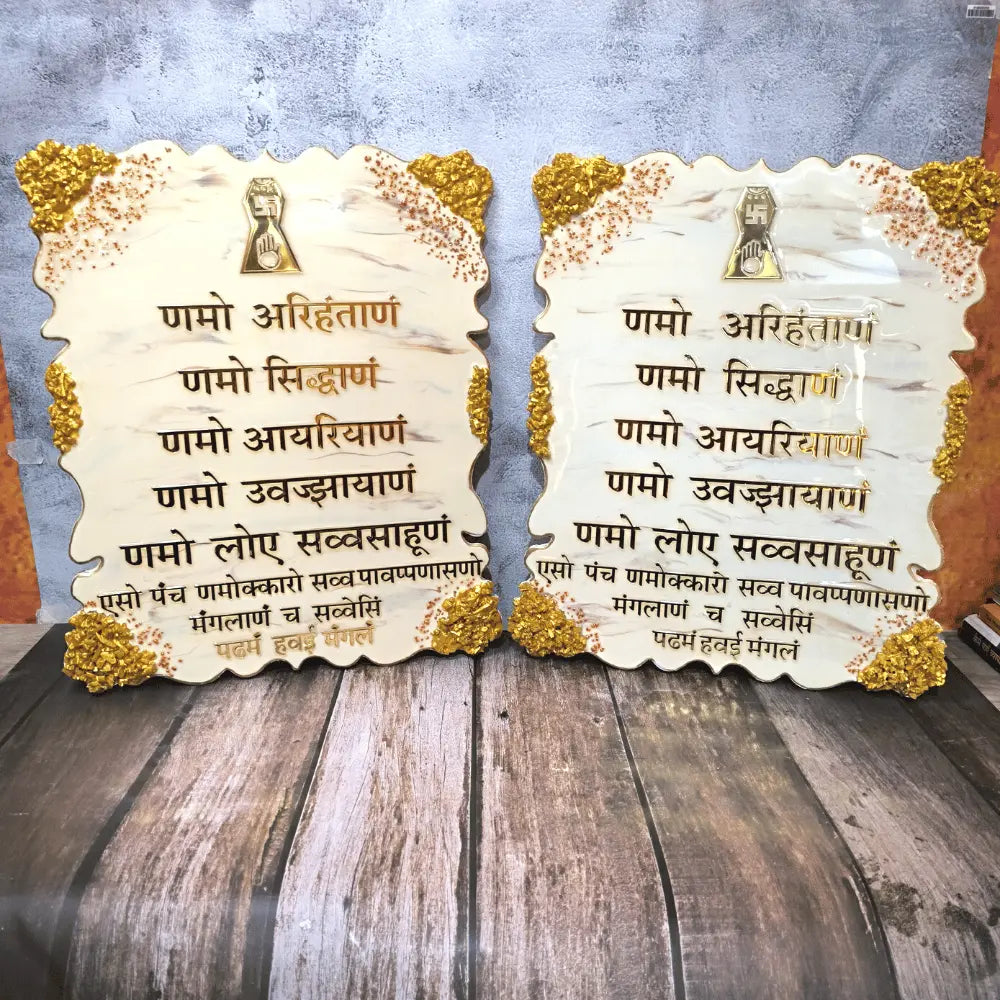 णमो अरिहंताणं
णमो सिद्धाणं
णमो आयरियाणं
णमो उवज्झायाणं
णमो लोए सव्वसाहूणं
एसो पंच णमोक्कारो सव्व पावप्पणासणो
मंगलाणं च सव्वेसिं
पढमं हवई मंगलं
णमो अरिहंताणं
णमो सिद्धाणं
णमो आयरियाणं
णमो उवज्झायाणं
णमो लोए सव्वसाहूणं
एसो पंच णमोक्कारो सव्व पावप्पणासणो
मंगलाणं च सव्वेसिं
पढमं हवई मंगलं